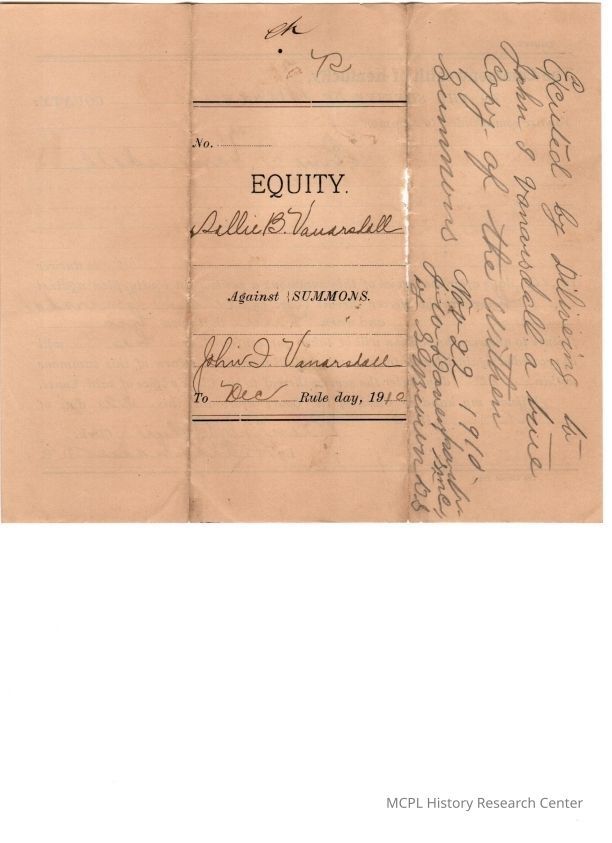 ck
R
No.
EQUITY.
Sallie B. Vanarsdall
Against } SUMMONS.
John I. Vanarsdall
To Dec Rule day, 1910
Excuted by Diliveing to
John I Vanarsdale a true
Copy of the within
Summons Nov 22 1910
Jno Davenport
By Simmons
MCPL History Research Center